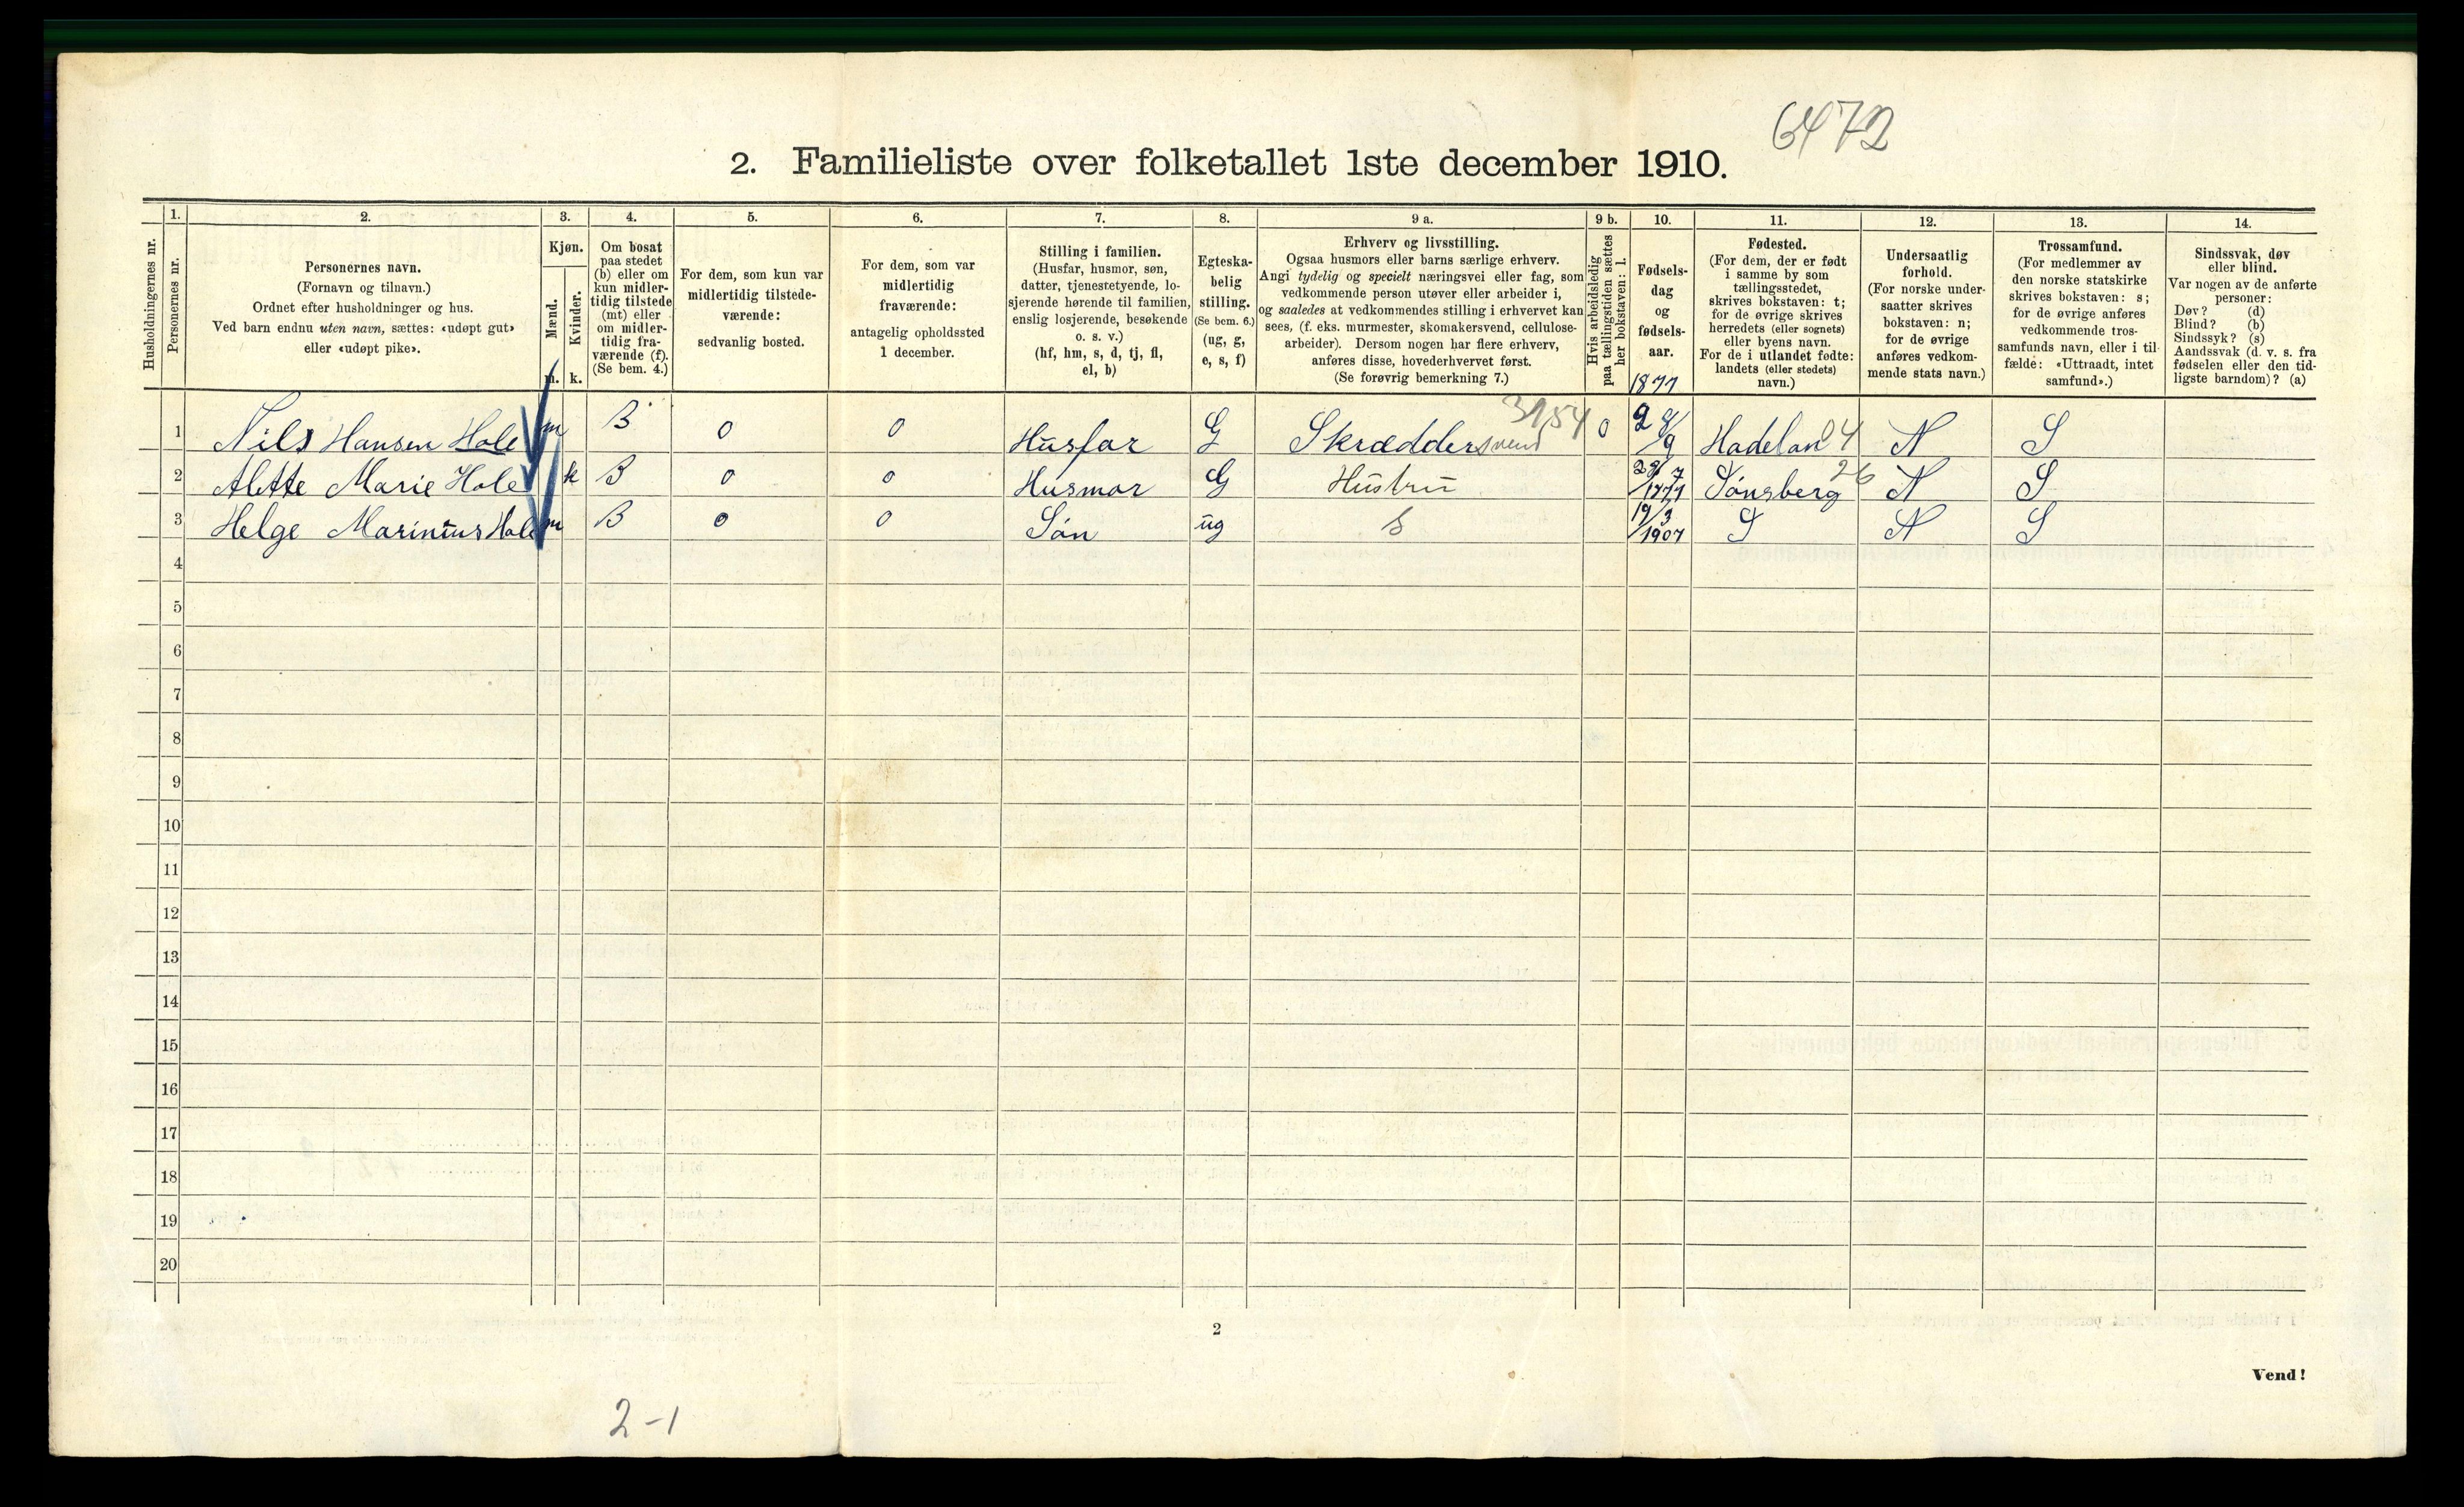 6472
2. Familieliste over folketallet 1ste december 1910.
Husholdningernes nr.
1.
Personernes nr.
2.
Personernes navn.
(Fornavn og tilnavn.)
Ordnet efter husholdninger og hus.
Ved barn endnu uten navn, sættes: «udøpt gut»
eller «udøpt pike».
3.
Kjøn.
Mænd.
m.
Kvinder.
k.
4.
Om bosat
paa stedet
(b) eller om
kun midler-
tidig tilstede
(mt) eller
om midler-
tidig fra-
værende (f).
(Se bem. 4.)
5.
For dem, som kun var
midlertidig tilstede-
værende:
sedvanlig bosted.
6.
For dem, som var
midlertidig
fraværende:
antagelig opholdssted
1 december.
7.
Stilling i familien.
(Husfar, husmor, søn,
datter, tjenestetyende, lo-
sjerende hørende til familien,
enslig losjerende, besøkende
o. s. v.)
(hf, hm, s, d, tj, fl,
el, b)
8.
Egteska-
belig
stilling.
(Se bem. 6.)
(ug, g,
e, s, f)
9 a.
Erhverv og livsstilling.
Ogsaa husmors eller barns særlige erhverv.
Angi tydelig og specielt næringsvei eller fag, som
vedkommende person utøver eller arbeider i,
og saaledes at vedkommendes stilling i erhvervet kan
sees, (f. eks. murmester, skomakersvend, cellulose-
arbeider). Dersom nogen har flere erhverv,
anføres disse, hovederhvervet først.
(Se forøvrig bemerkning 7.)
9 b.
Hvis arbeidsledig
paa tællingstiden sættes
her bokstaven: l.
10.
Fødsels-
dag
og
fødsels-
aar.
1877
11.
Fødested.
(For dem, der er født
i samme by som
tællingsstedet,
skrives bokstaven: t;
for de øvrige skrives
herredets (eller sognets)
eller byens navn.
For de i utlandet fødte:
landets (eller stedets)
navn.)
12.
Undersaatlig
forhold.
(For norske under-
saatter skrives
bokstaven: n;
for de øvrige
anføres vedkom-
mende stats navn.)
13.
Trossamfund.
(For medlemmer av
den norske statskirke
skrives bokstaven: s;
for de øvrige anføres
vedkommende tros-
samfunds navn, eller i til-
fælde: «Uttraadt, intet
samfund».)
14.
Sindssvak, døv
eller blind.
Var nogen av de anførte
personer:
Døv? (d)
Blind? (b)
Sindssyk? (s)
Aandssvak (d. v. s. fra
fødselen eller den tid-
ligste barndom)? (a)
1 Nils Hansen Hole m B 0 0 Husfar G Skræddersvend 3154 0 28/9 Hadeland 04 N S
2 Alette Marie Hole k B 0 0 Husmor G Hustru 28/7 1877 Tønsberg 26 N S
3 Helge Marinius Hole m B 0 0 Søn ug S 19/3 1907 T N S
4
5
6
7
8
9
10
11
12
13
14
15
16
17
18
19
20
2
Vend!
2-1